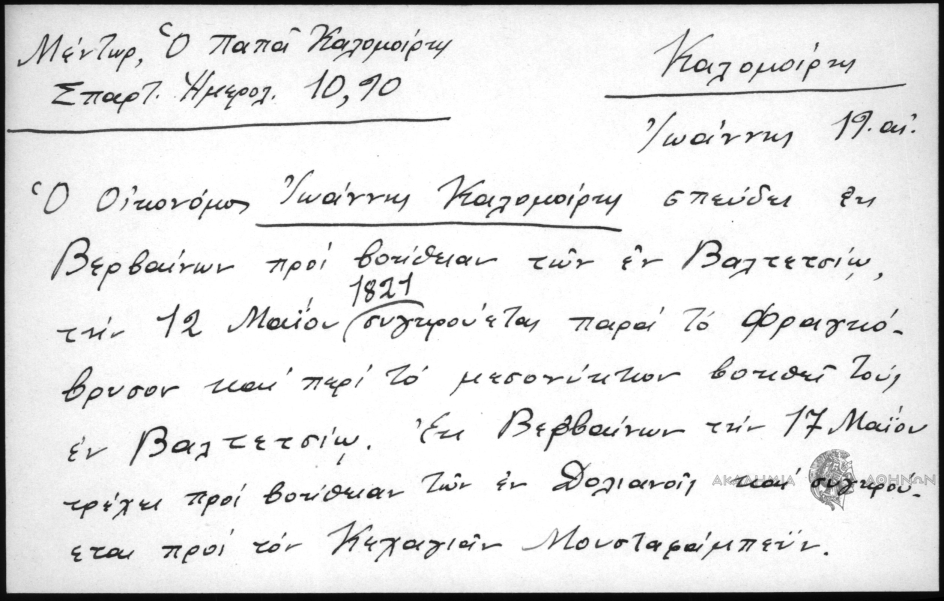 Μέντωρ, Ὁ Παπᾶ Καλομοίρης
Σπαρτ. Ἡμερολ. 10,90
Καλομοίρης
Ἰωάννης 19. αἰ.
Ὁ Οἰκονόμος Ἰωάννης Καλομοίρης σπεύδει ἐκ
Βερβαίνων πρὸς βοήθειαν τῶν ἐν Βαλτετσίῳ,
τὴν 12 Μαΐου 1821 συγκρούεται παρὰ τὸ Φραγκό-
βρυσον καὶ περὶ τὸ μεσονύκτιον βοηθεῖ τοὺς
ἐν Βαλτετσίῳ. Ἐκ Βερβαίνων τὴν 17 Μαΐου
τρέχει πρὸς βοήθειαν τῶν ἐν Δολιανοῖς καὶ συγκρού-
εται πρὸς τὸν Κεχαγιᾶν Μουσταφάμπεϋν.
ΑΚΑΔΗΜΙΑ ΑΘΗΝΩΝ